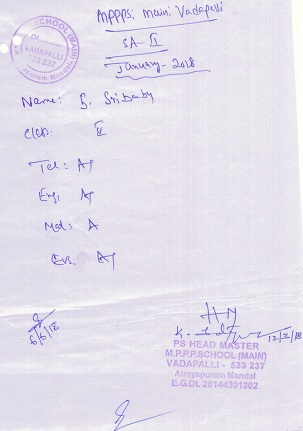 MPPPS: Main: Vadapalli
SA - II
January - 2018
SCHOOL (MAIN)
VADAPALLI
533 237
Atreyapuram Mandal
Name: B. Sri
Class: V
Tel: A+
Eng: A+
Mat: A
Evs: A+
6/6/18
HM
12/2/18
PS HEAD MASTER
M.P.P.P.SCHOOL (MAIN)
VADAPALLI - 533 237
Atreyapuram Mandal
E.G.Dt. 28144301302